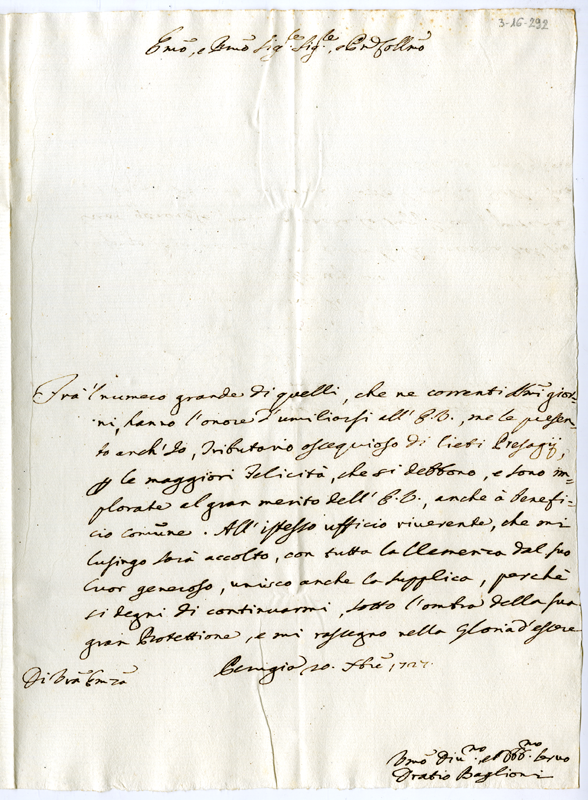 3-16-292
Emõ, e Rmõ Sig.re Sig.re, e Pnẽ Collmõ
Frà 'l numero grande di quelli, che ne correnti Smi gior-
ni, hanno l'onore d'umiliarsi all' E.V., me le presen-
to anch' Io, Tributario ossequioso di lieti Presagij,
p le maggiori Felicità, che si debbono, e sono im=
plorate al gran merito dell' E.V., anche à benefi-
cio comũne. All' istesso ufficio riverente, che mi
lusingo sarà accolto, con tutta la Clemenza dal suo
Cuor generoso, unisco anche la supplica, perchè
si degni di continuarmi, sotto l'ombra della sua
gran Protettione, e mi rassegno nella Gloria d'essere
Di Vrã Emzã
Perugia 20. Xbrẽ 1727.
Vmõ Diu.no et Obb.no Servo
Oratio Baglioni